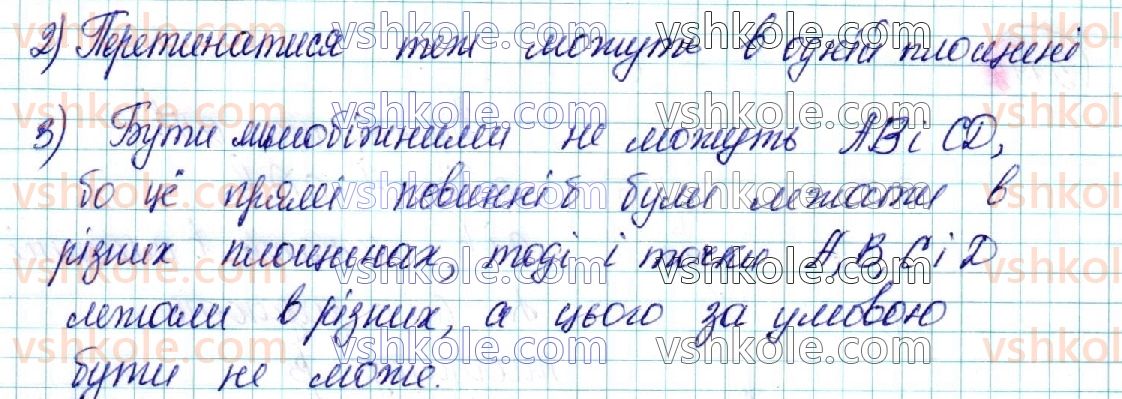 2) Перетинатися теж можуть в одній площині
3) Бути мимобіжними не можуть AB і CD,
бо це прямі повинні б були лежати в
різних площинах, тоді і точки A, B, C і D
лежали в різних, а цього за умовою
бути не може.